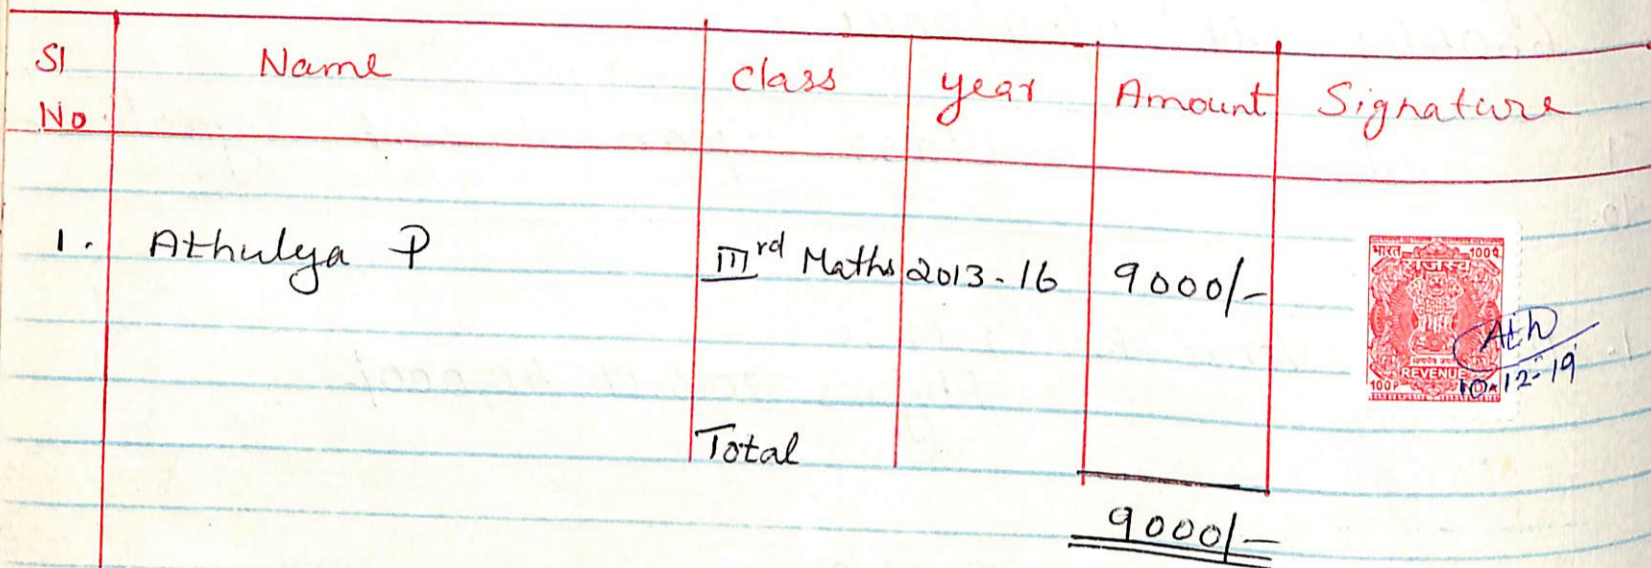 Sl No. Name Class Year Amount Signature
1. Athulya P IIIrd Maths 2013-16 9000/-
भारत 100 प
राजस्व
REVENUE
100 P
Ath
10-12-19
Total
9000/-